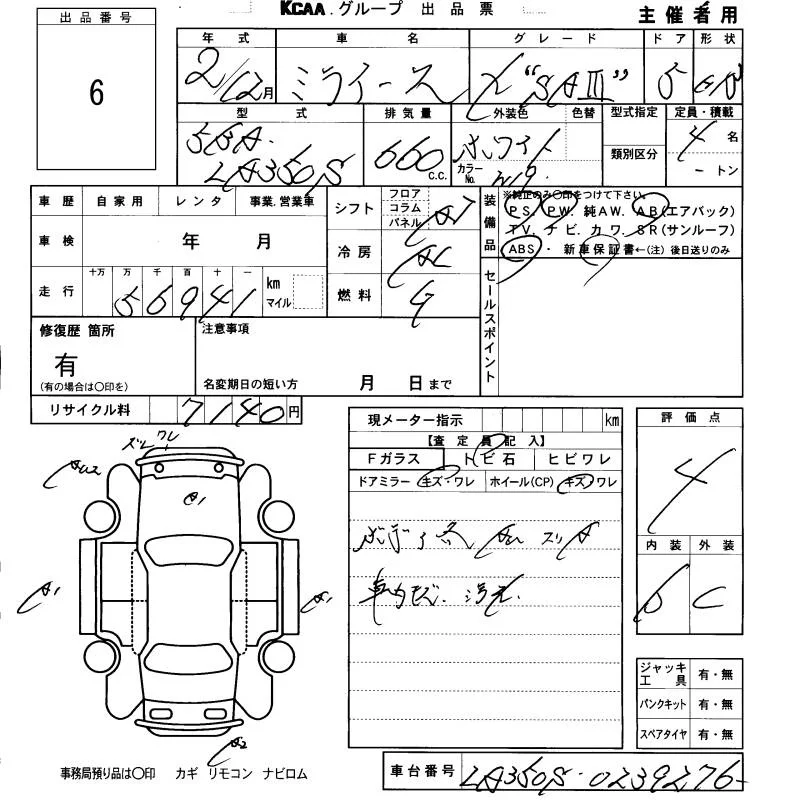 KCAA.グループ 出品票
主催者用
出品番号
6
年式 車名 グレード ドア 形状
2/12月 ミライース X "SAⅢ" 5
型式 排気量 外装色 色替 型式指定 定員・積載
5BA-
LA350S 660 c.c. ホワイト 4 名
カラーNo. W19 類別区分 ートン
車歴 自家用 レンタ 事業.営業車
シフト フロア コラム パネル AT
装備品
※純正のみ〇印をつけて下さい。
PS. PW. 純AW. AB(エアバック)
TV. ナビ. カワ. SR(サンルーフ)
ABS・ 新車保証書←(注) 後日送りのみ
車検 年 月
冷房 AC
走行 十万 万 千 百 十 一
56941 km マイル
燃料 G
セールスポイント
修復歴 箇所
有
(有の場合は〇印を)
注意事項
名変期日の短い方 月 日まで
リサイクル料 7140円
現メーター指示 km
【査定員記入】
Fガラス トビ石 ヒビワレ
ドアミラー キズ・ワレ ホイール(CP) キズ・ワレ
評価点
4
内装 外装
C
ズレ ワレ
AU2
A1
A1
A1
A2
車内キズ. 汚れ.
ジャッキ工具 有・無
パンクキット 有・無
スペアタイヤ 有・無
事務局預り品は〇印 カギ リモコン ナビロム
車台番号 LA350S-0239276-